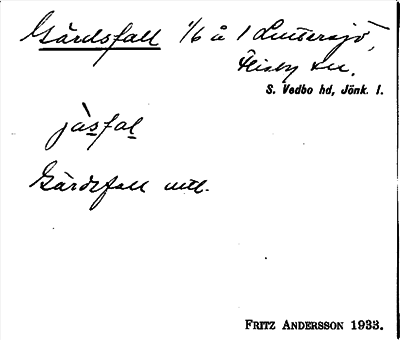 Gärdsfall 1/6 å 1 Luttersjö,
Flisby sn.
S. Vedbo hd, Jönk. l.
jàsfal
Gärdsfall mtl.
FRITZ ANDERSSON 1933.